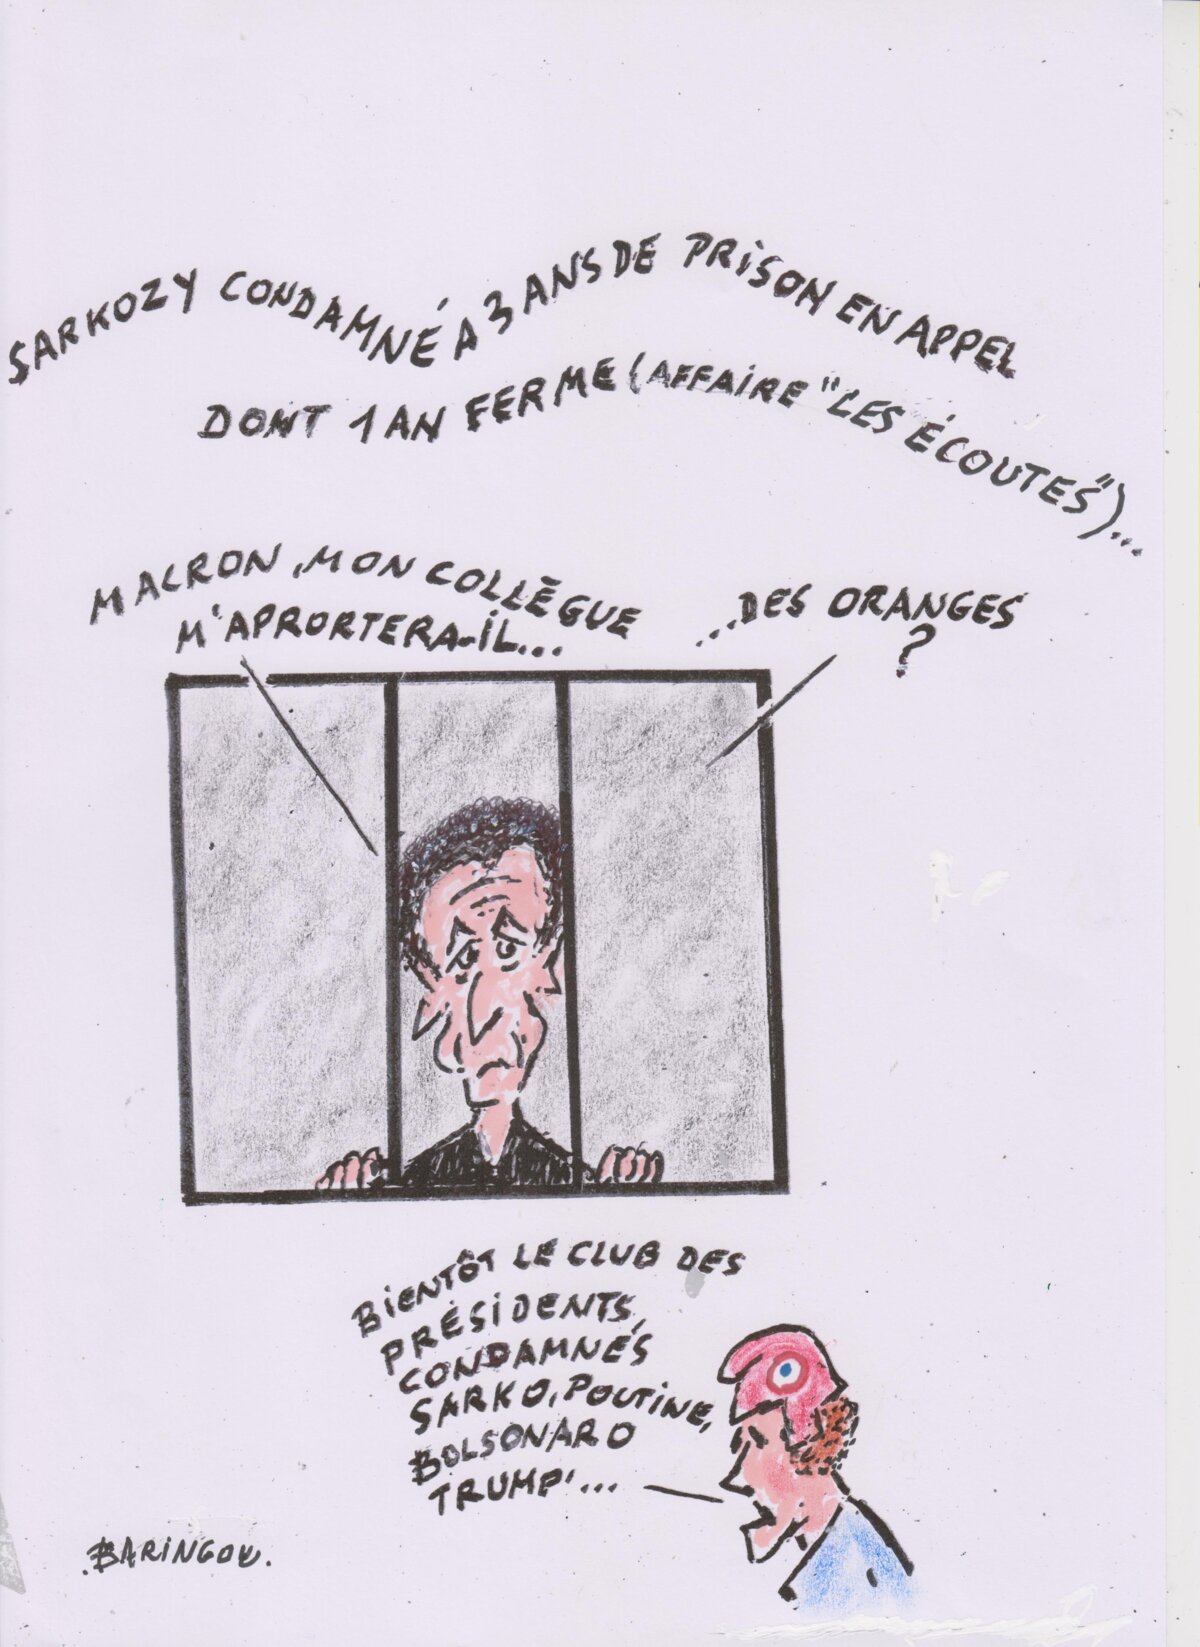 SARKOZY CONDAMNÉ A 3 ANS DE PRISON EN APPEL
DONT 1 AN FERME (AFFAIRE "LES ÉCOUTES")...
MACRON, MON COLLÈGUE
M'APRORTERA-IL...
...DES ORANGES
?
BIENTÔT LE CLUB DES
PRÉSIDENTS,
CONDAMNÉS
SARKO, POUTINE,
BOLSONARO
TRUMP'...
.BARINGOU.